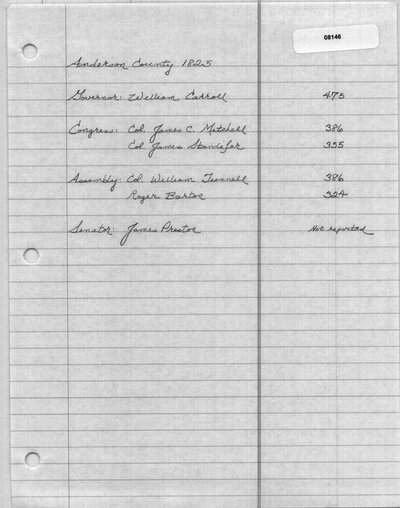 08146
Anderson County 1825
Governor: William Carroll 475
Congress: Col. James C. Mitchell 386
Col. James Standifer 355
Assembly: Col. William Tunnell 386
Roger Barton 324
Senator: James Preston Not reported